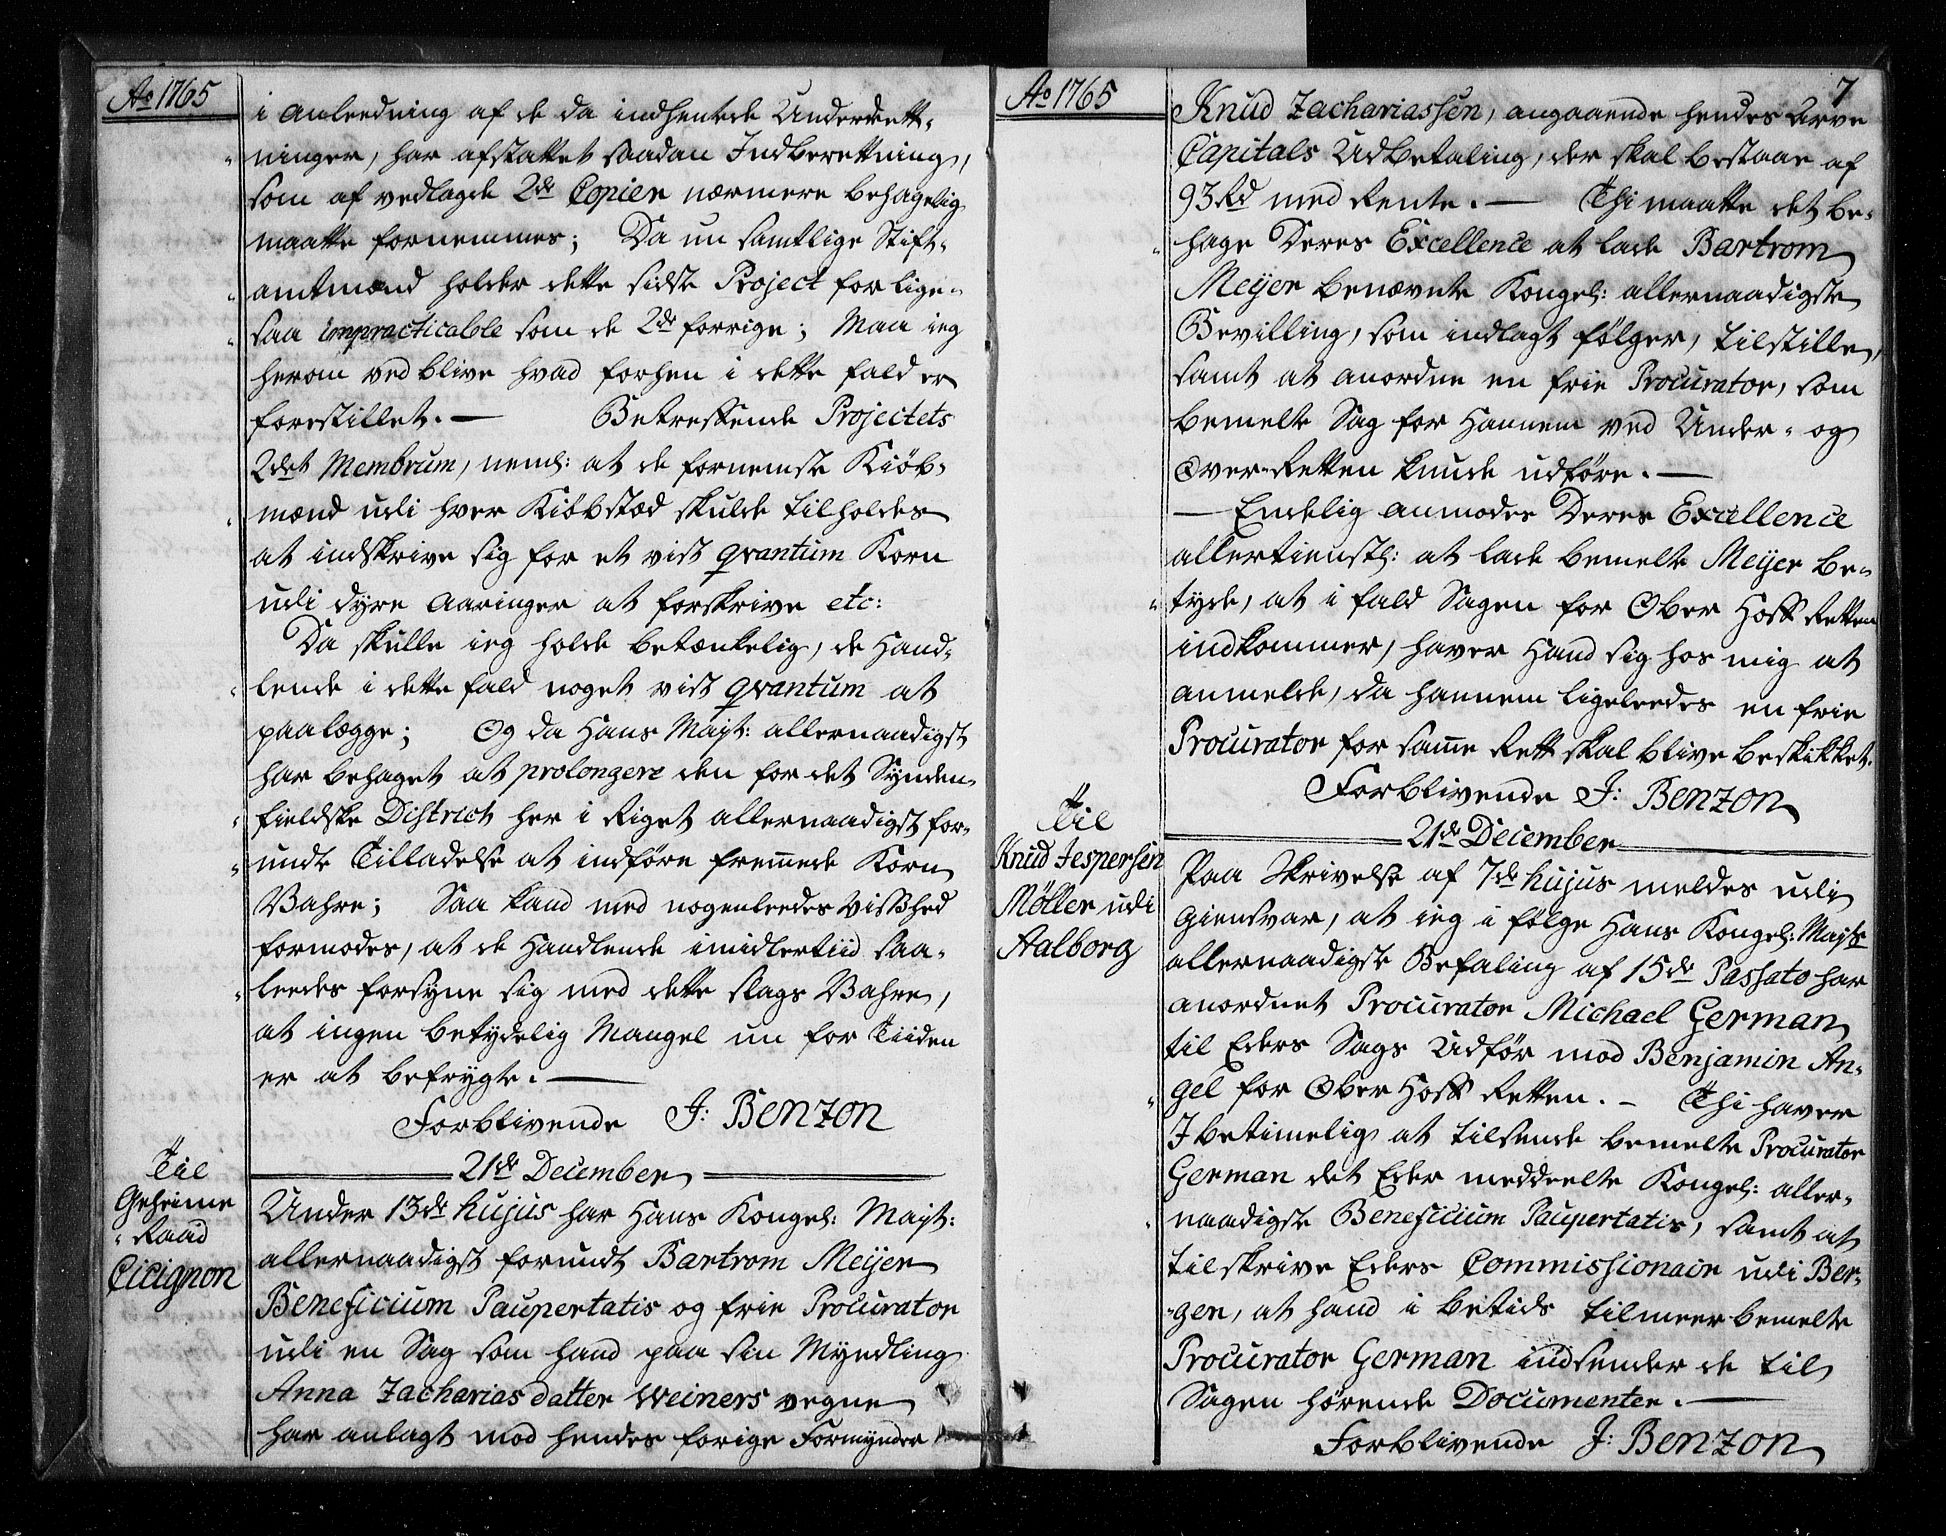 Ao 1765
i anleedning af de da indhentede Underrett-
ninger, har afstattet saadan Indberettning,
som af vedlagde 2de Copier nærmere behagelig
maatte fornemmes; Da nu samtlige Stift-
amtmænd holder dette sidste Project for lige-
saa impracticable som de 2de forrige; Maa ieg
herom ved blive hvad forhen i dette fald er
forestillet. — Betreffende Projectets
2det Membrum, neml: at de fornemste Kiöb-
mænd udi hver Kiöbstæd skulde tilholdes
at indskrive sig for et vist qvantum Korn
udi dyre Aaringer at forskrive etc:
Da skulle ieg holde betænkelig, de Hand-
lende i dette fald noget vist qvantum at
paalægge; Og da Hans Mayt: allernaadigst
har behaget at prolongere den for det Synden-
fieldske District her i Riget allernaadigst for-
undte Tilladelse at indføre fremmede Korn
Vahre; Saa kand med nogenleedes Visshed
formodes, at de Handlende imidlertiid saa-
leedes forsyne sig med dette slags Vahre,
at ingen betydelig Mangel nu for Tiiden
er at befrygte. —
Forblivende J: Benzon
21de December
Til
Geheime
Raad
Cicignon
Under 13de hujus har Hans Kongel: Mayt:
allernaadigst forundt Bartrom Meijer
Beneficium Paupertatis og frie Procurator
udi en Sag som hand paa sin Myndling
Anna Zacharias datter Weiners vegne
har anlagt mod hendes forige Formynder
Ao 1765
7
Knud Zachariassen, angaaende hendes Arve
Capitals Udbetaling, der skal bestaae af
93 Rd med Rente. — Thi maatte det be-
hage Deres Excellence at lade Bartrom
Meijer benævnte Kongel: allernaadigste
Bevilling, som indlagt følger, tilstille,
samt at anordne en frie Procurator, som
bemelte Sag for Hannem ved Under- og
Over-Retten kunde udføre. —
— Endelig anmodes Deres Excellence
allertienstl: at lade bemelte Meijer be-
tyde, at i fald Sagen for Ober Hoff Retten
indkommer, haver Hand sig hos mig at
anmelde, da hannem ligeleedes en frie
Procurator for samme Rett skal blive beskikket.
Forblivende J: Benzon
21de December
Til
Knud Jespersen
Møller udi
Aalborg
Paa Skrivelse af 7de hujus meldes udi
giensvar, at ieg i følge Hans Kongel: Mayts
allernaadigste Befaling af 15de Passato har
anordnet Procurator Michael German
til Eders Sags Udfør mod Benjamin An-
gel for Ober Hoff Retten. — Thi haver
I betimelig at tilsende bemelte Procurator
German det Eder meddeelte Kongel: aller-
naadigste Beneficium Paupertatis, samt at
tilskrive Eders Commissionair udi Ber-
gen, at hand i betids tilmeerbemelte
Procurator German indsender de til
Sagen hørende Documenter. —
Forblivende J: Benzon